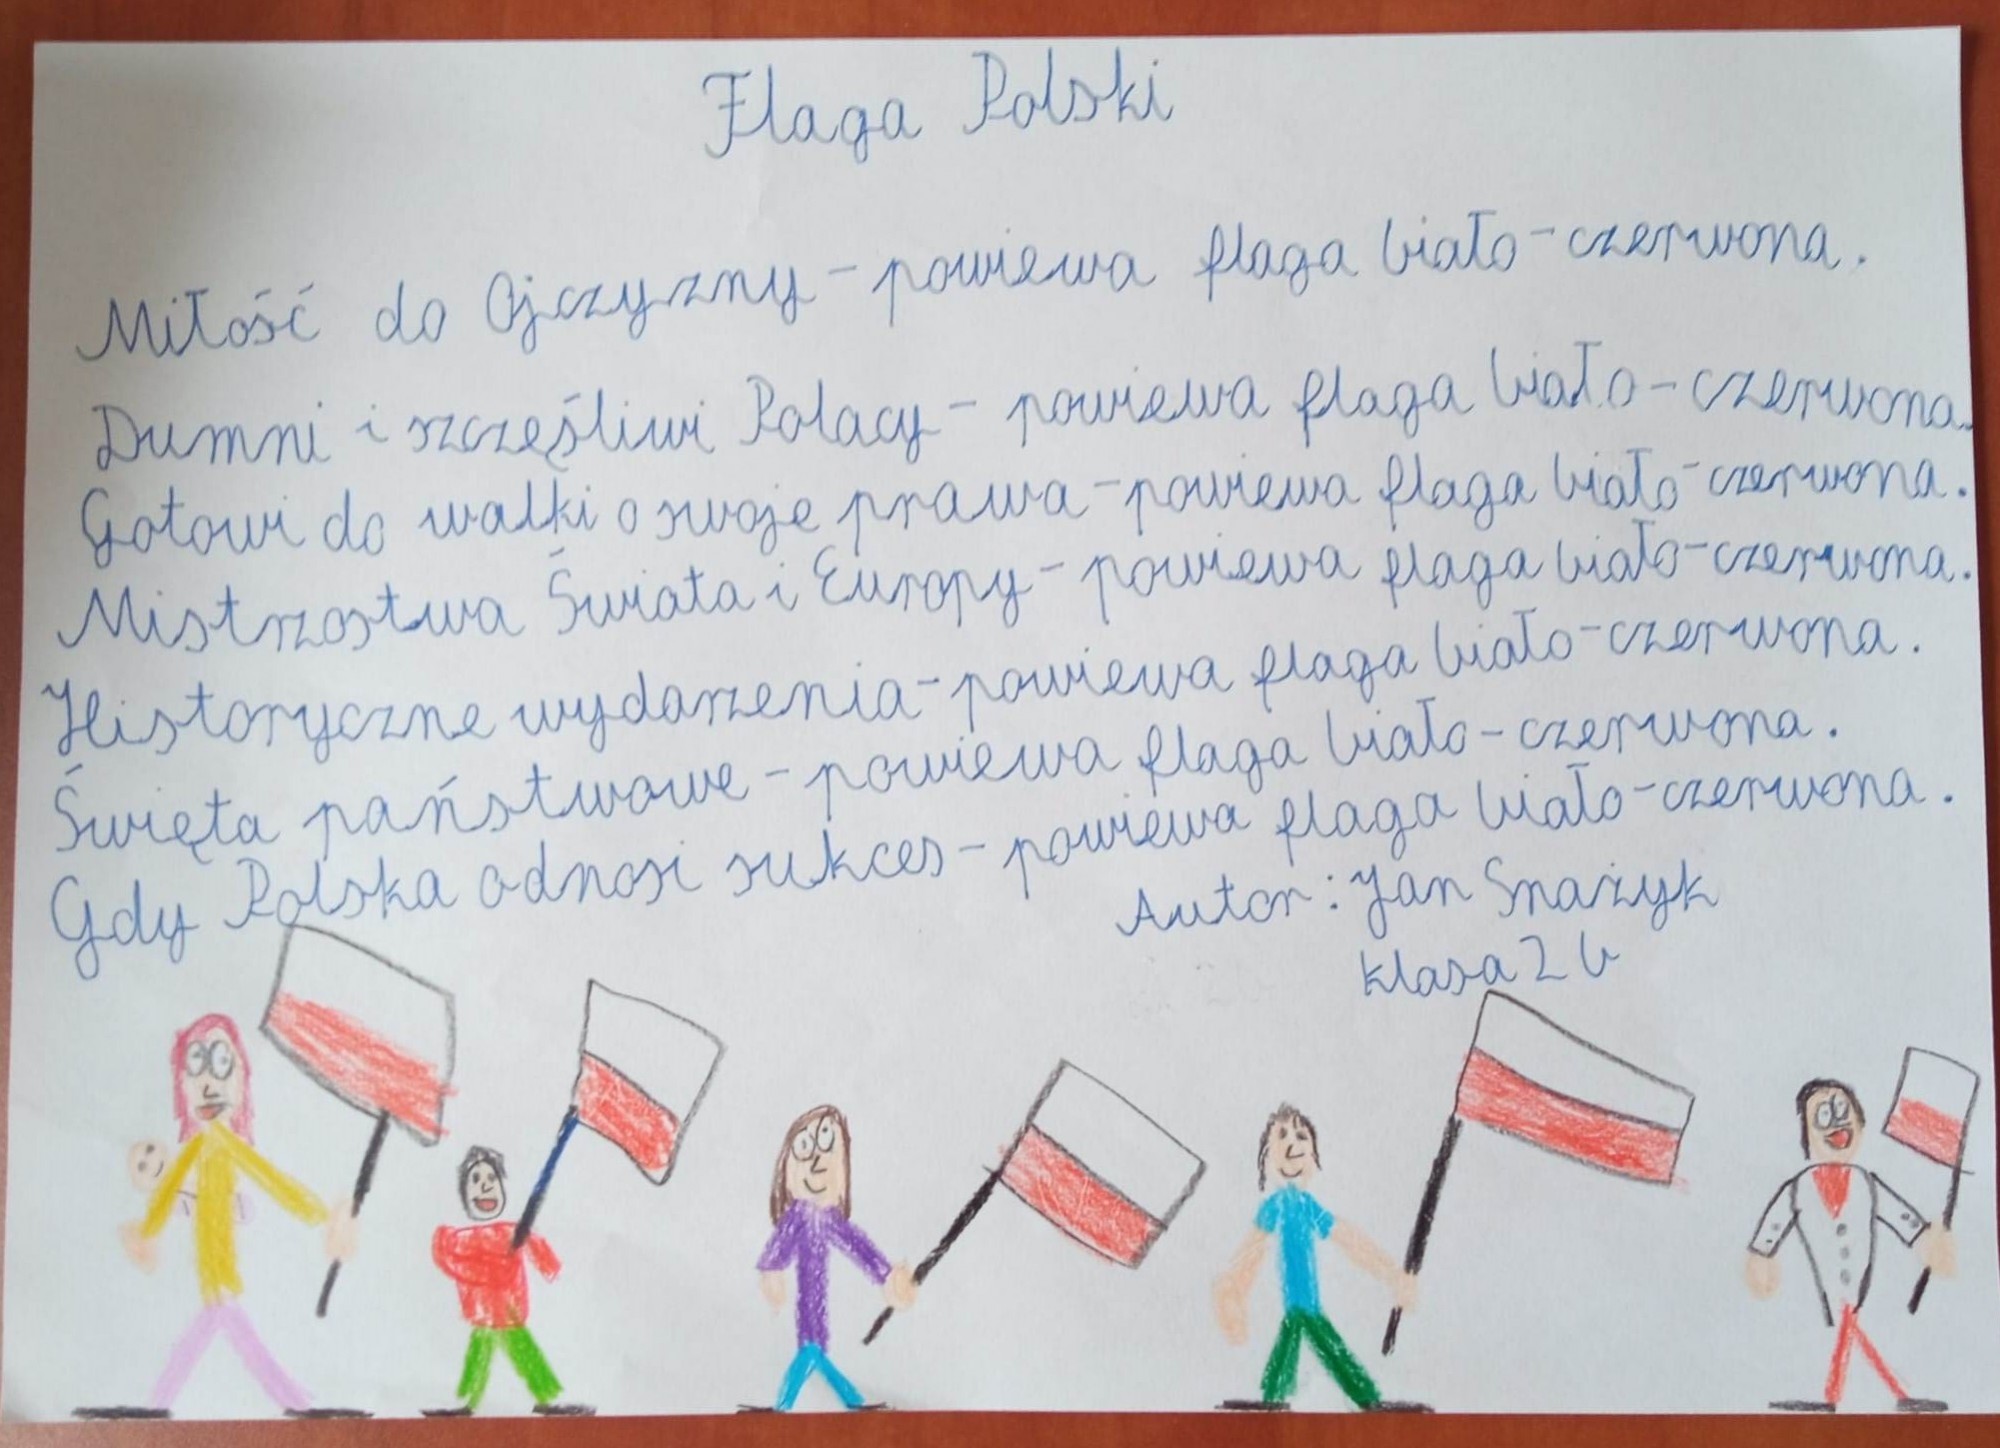 Flaga Polski
Miłość do Ojczyzny - powiewa flaga biało-czerwona.
Dumni i szczęśliwi Polacy - powiewa flaga biało-czerwona.
Gotowi do walki o swoje prawa - powiewa flaga biało-czerwona.
Mistrzostwa Świata i Europy - powiewa flaga biało-czerwona.
Historyczne wydarzenia - powiewa flaga biało-czerwona.
Święta państwowe - powiewa flaga biało-czerwona.
Gdy Polska odnosi sukces - powiewa flaga biało-czerwona.
Autor: Jan Snażyk
klasa 2 b